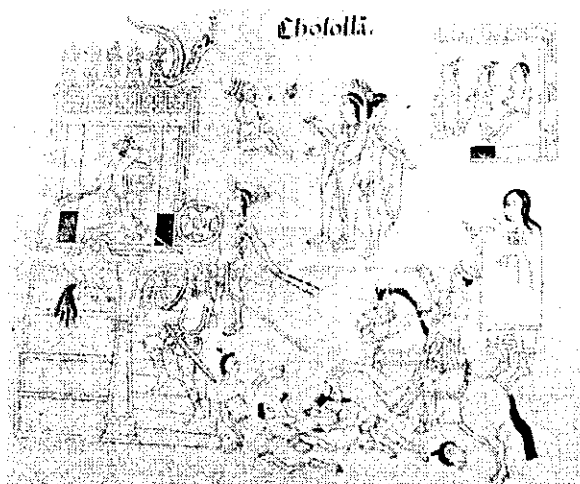 Cholollā.